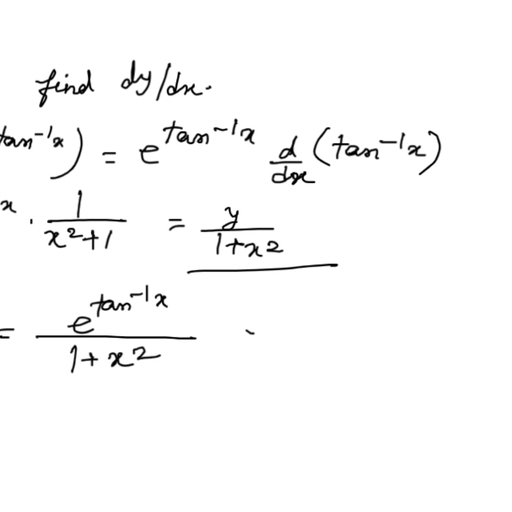 find dy/dx.
tan⁻¹x) = e^(tan⁻¹x) d/dx (tan⁻¹x)
x · 1/(x²+1) = y/(1+x²)
= e^(tan⁻¹x)/(1+x²)